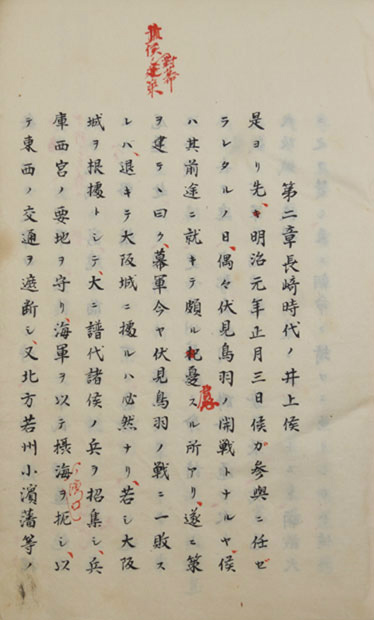 井侯ノ建策
對幕
第二章長崎時代ノ井上侯
是ヨリ先、キ明治元年正月三日侯ガ參與ニ任ゼ
ラレタルノ日、偶々伏見鳥羽ノ開戰トナルヤ、侯
ハ其前途ニ就キテ頗ル杞憂スル所アリ、遂ニ策
慮
ヲ建テヽ曰ク、幕軍今ヤ伏見鳥羽ノ戰ニ一敗ス
レバ、退キテ大阪城ニ據ルハ必然ナリ、若シ大阪
城ヲ根據トシテ、大ニ譜代諸侯ノ兵ヲ招集シ、兵
庫西宮ノ要地ヲ守リ、海軍ヲ以テ摂海ヲ扼シ、以
テ東西ノ交通ヲ遮断シ、又北方若州小濱藩等ノ